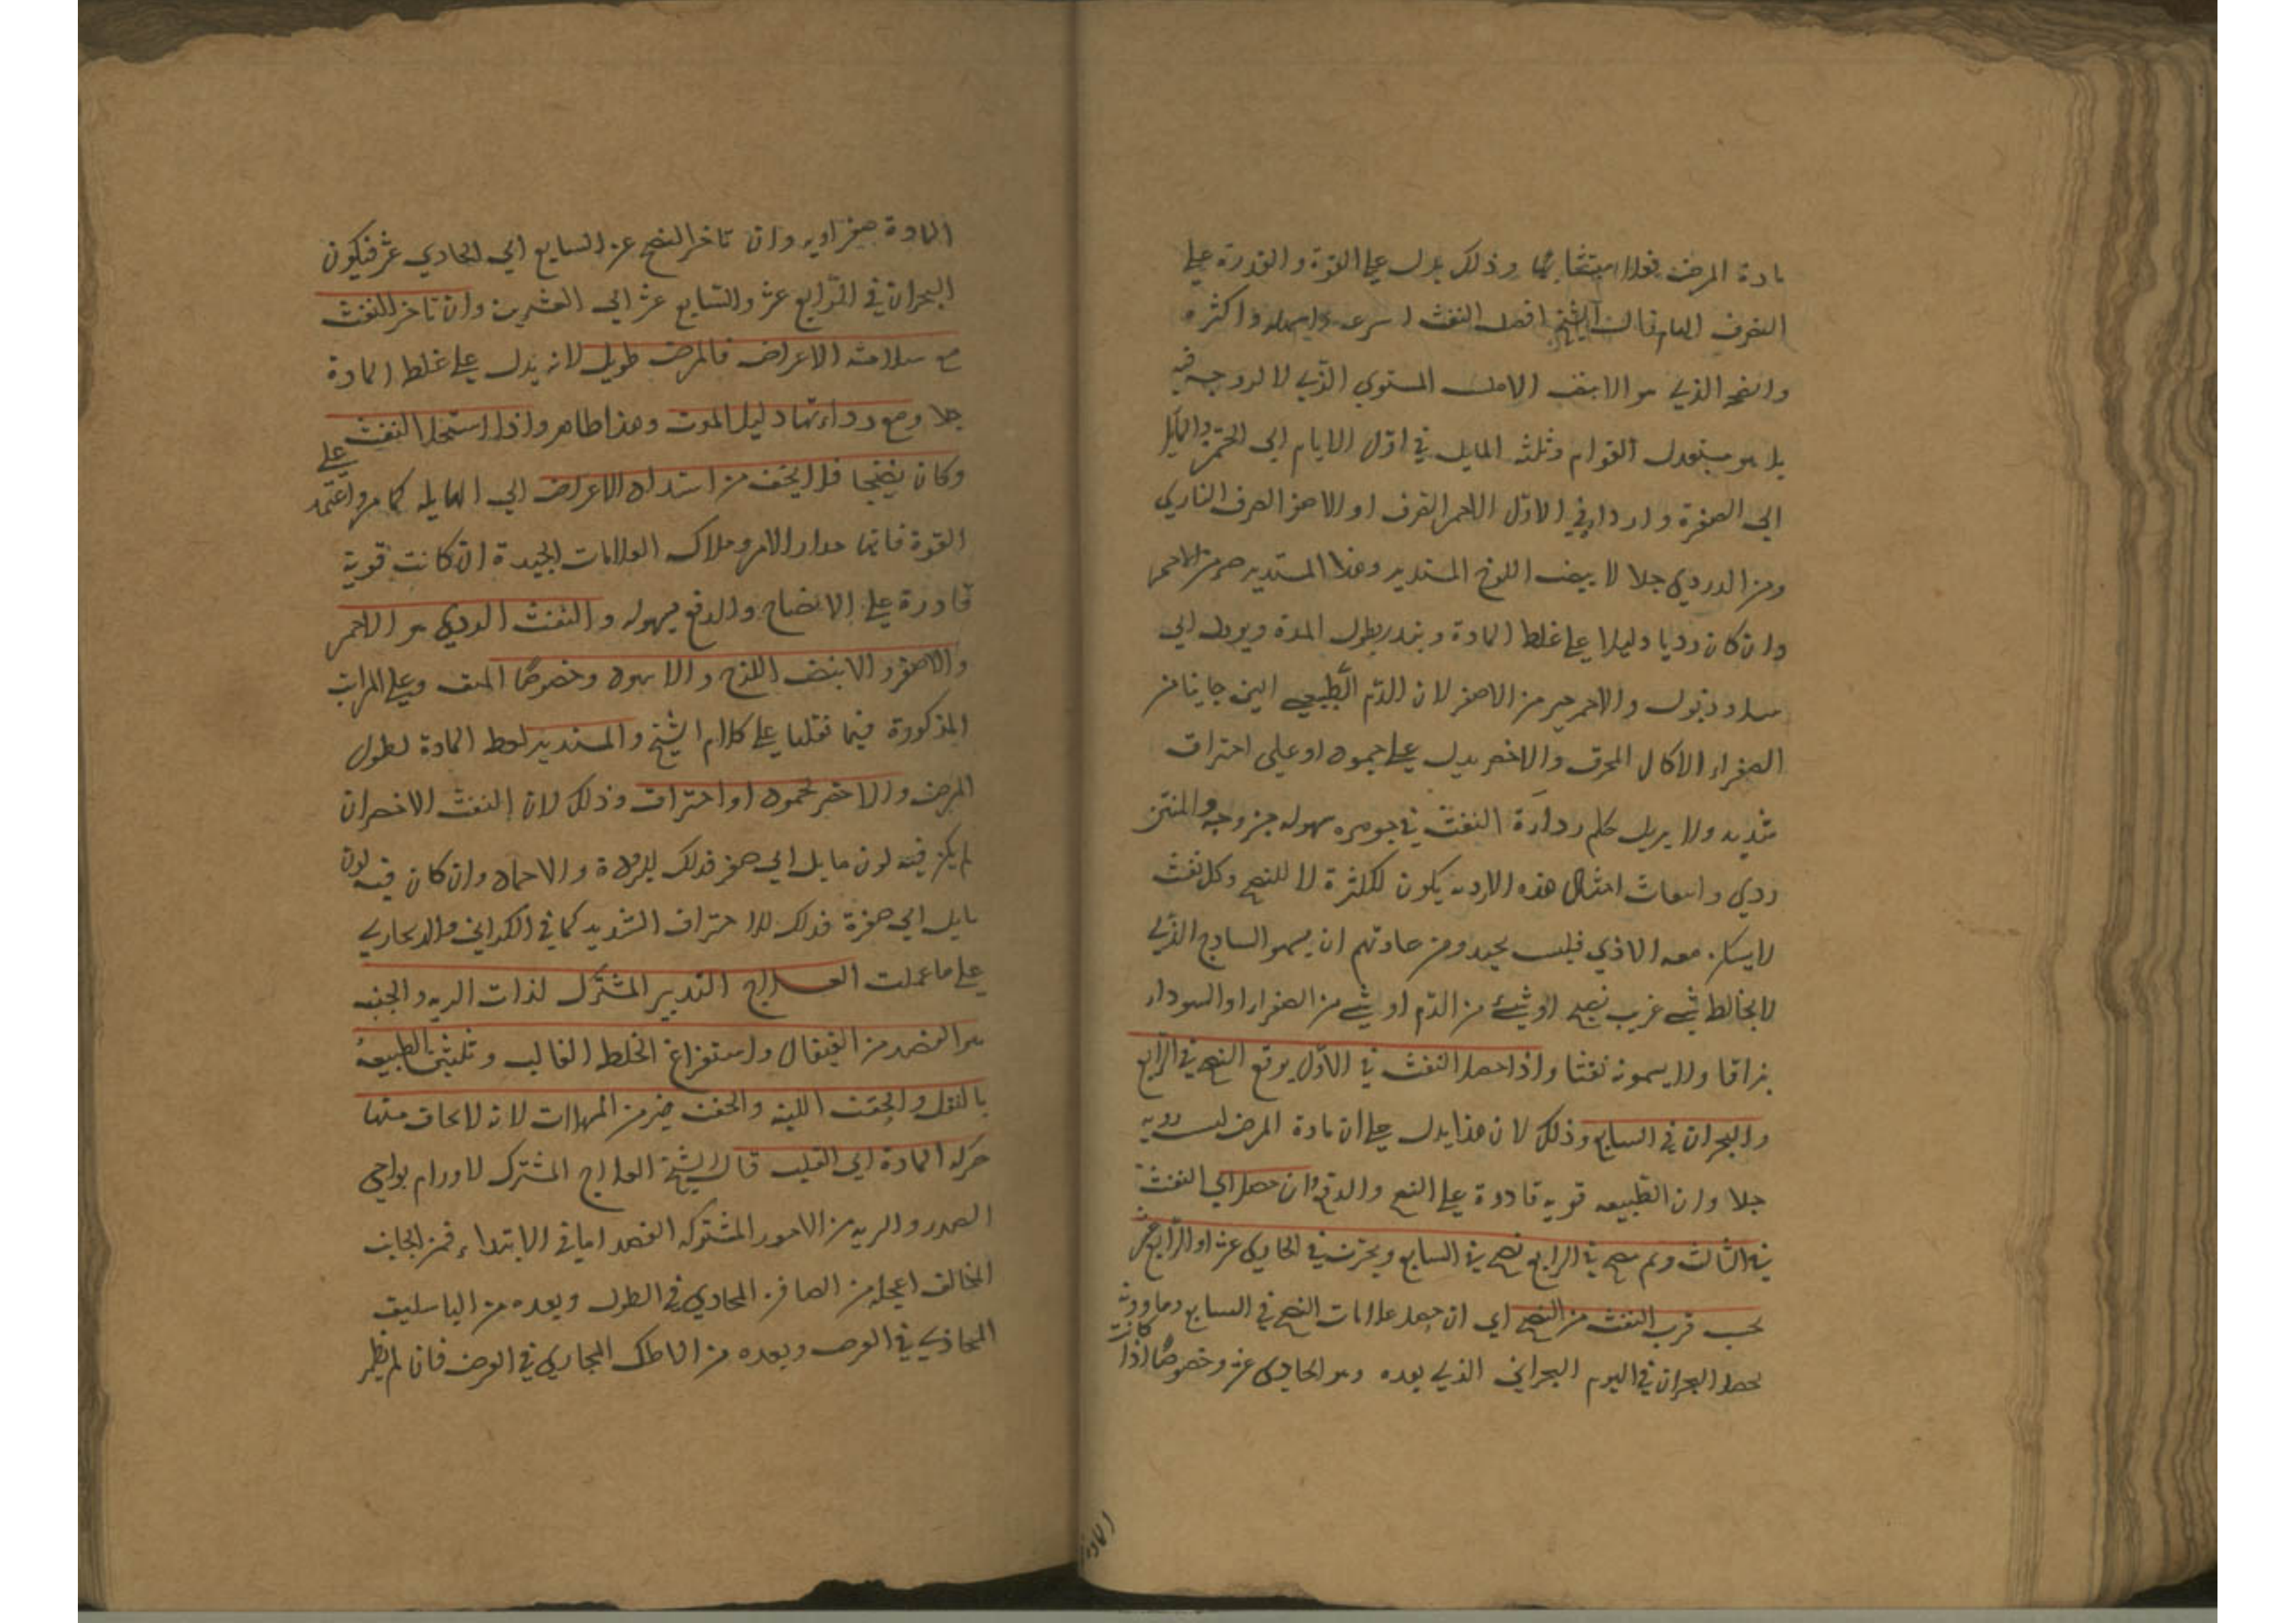 مادة المرض فعلا متشابها وذلك يدل على القوة والقدرة على
التصرف العام قال الشيخ افضل النفث اسرعه واسهله واكثره
وانضجه الذي هو الابيض الاملس المستوي الذي لا لزوجة فيه
بل هو معتدل القوام وثلثه المايل في اول الايام الى الحمرة والمايل
الى الصفرة واردا في الاول الاحمر الصرف او الاصفر الصرف الناري
ومن الردي جدا الابيض اللزج المستدير وهذا المستدير من الاحمر
وان كان رديا دليلا على غلظ المادة وينذر بطول المدة ويول الى
سل وذبول والاحمر خير من الاصفر لان الدم الطبيعي الين جانبا من
الصفراء الاكال المحرق والاخضر يدل على جمود او على احتراق
شديد ولا يزيل حكم رداءة النفث في جوهره سهولة خروجه والمنتن
ردي وانبعاث امثال هذه الاردية يكون للكثرة لا للنضج وكل نفث
لا يسكن معه الاذي فليس بجيد ومن عادتهم ان يسموا الساذج الذي
لا يخالطه شي غريب نضج او شيء من الدم او شي من الصفراء او السوداء
بزاقا ولا يسمونه نفثا واذا حصل النفث في الاول يوقع النضج في الرابع
والبحران في السابع وذلك لان هذا يدل على ان مادة المرض ليست ردية
جدا وان الطبيعه قويه قادرة على النضج والدفع وان حصل اي النفث
في الثالث ولم ينضج في الرابع نضج في السابع وبحرن في الحادي عشر او الرابع عشر
بحسب قرب النفث من النضج اي ان حصل علامات النضج في السابع وما دونه
يحصل البحران في اليوم البحراني الذي بعده وهو الحادي عشر وخصوصا اذا كانت
المادة
المادة صفراويه وان تاخر النضج عن السابع الى الحادي عشر فيكون
البحران في الرابع عشر والسابع عشر الى العشرين وان تاخر النفث
مع سلامة الاعراض فالمرض طويل لانه يدل على غلظ المادة
جدا ومع رداءتها دليل الموت وهذا ظاهر واذا استعجل النفث
وكان نضيجا فلا يخف من اشتداد الاعراض الى الهايله كما مر واعتمد على
القوة فانها مدار الامر وملاك العلامات الجيدة ان كانت قوية
قادرة على الانضاج والدفع بسهوله والنفث الردي هو الاحمر
والاصفر والابيض اللزج والاسود وخصوصا المنتن وعلى المراتب
المذكورة فيما نقلنا على كلام الشيخ والمستدير لغلظ المادة لطول
المرض والاخضر لجمود او احتراق وذلك لان النفث الاخضر ان
لم يكن فيه لون مايل الى صفرة فذلك للبرودة والاجماد وان كان فيه لون
مايل الى صفرة فذلك للاحتراق الشديد كما في الكراثي والزنجاري
على ما علمت العلاج التدبير المشترك لذات الريه والجنب
هو الفصد من القيفال واستفراغ الخلط الغالب وتليين الطبيعة
بالنقل والحقن اللينه والحقن خير من المسهلات لانه لا يخاف منها
حركه المادة الى القلب قال الشيخ العلاج المشترك لاورام نواحي
الصدر والريه من الامور المشتركه الفصد اما في الابتداء فمن الجانب
المخالف اعجله من الصافن المحاذي في الطول وبعده من الباسليق
المحاذي في العرض وبعده من الاكحل المحاذي في العرض فان لم يظهر